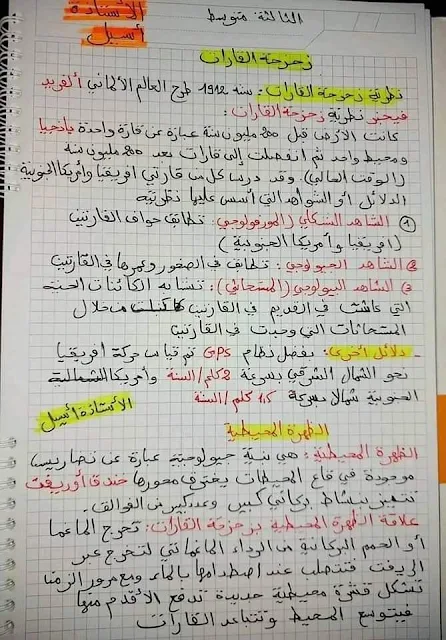 الأستاذة
أسيل
الثالثة متوسط
زحزحة القارات
نظرية زحزحة القارات: سنة 1912 طرح العالم الألماني ألفريد
فيجنر نظرية زحزحة القارات:
كانت الأرض قبل 200 مليون سنة عبارة عن قارة واحدة بانجيا
ومحيط واحد ثم انفصلت إلى قارات بعد 200 مليون سنة
(الوقت الحالي) وقد درس كل من قارتي افريقيا وأمريكا الجنوبية
الدلائل أو الشواهد التي أسس عليها نظريته
1 الشاهد الشكلي (المورفولوجي): تطابق حواف القارتين
(افريقيا وأمريكا الجنوبية)
2 الشاهد الجيولوجي: تطابق في الصخور وعمرها في القارتين
3 الشاهد البيولوجي (المستحاثي): تشابه الكائنات الحية
التي عاشت في القديم في القارتين من خلال
المستحاثات التي وجدت في القارتين
- دلائل أخرى: بفضل نظام GPS تم قياس حركة افريقيا
نحو الشمال الشرقي بسرعة 2كلم/السنة وأمريكا الشمالية
الجنوبية شمالا بسرعة 1,5 كلم/السنة
الأستاذة أسيل
الظهرة المحيطية
الظهرة المحيطية: هي بنية جيولوجية عبارة عن تضاريس
موجودة في قاع المحيطات يخترق محورها خندق أو ريفت
تتميز بنشاط بركاني كبير وعدد كبير من الفوالق.
علاقة الظهرة المحيطية بزحزحة القارات: تخرج الماغما
أو الحمم البركانية من الرداء الماغماتي لتخرج عبر
الريفت فتتصلب عند اصطدامها بالماء ومع مرور الزمن
تتشكل قشرة محيطية جديدة تدفع الأقدم منها
فيتوسع المحيط وتتباعد القارات